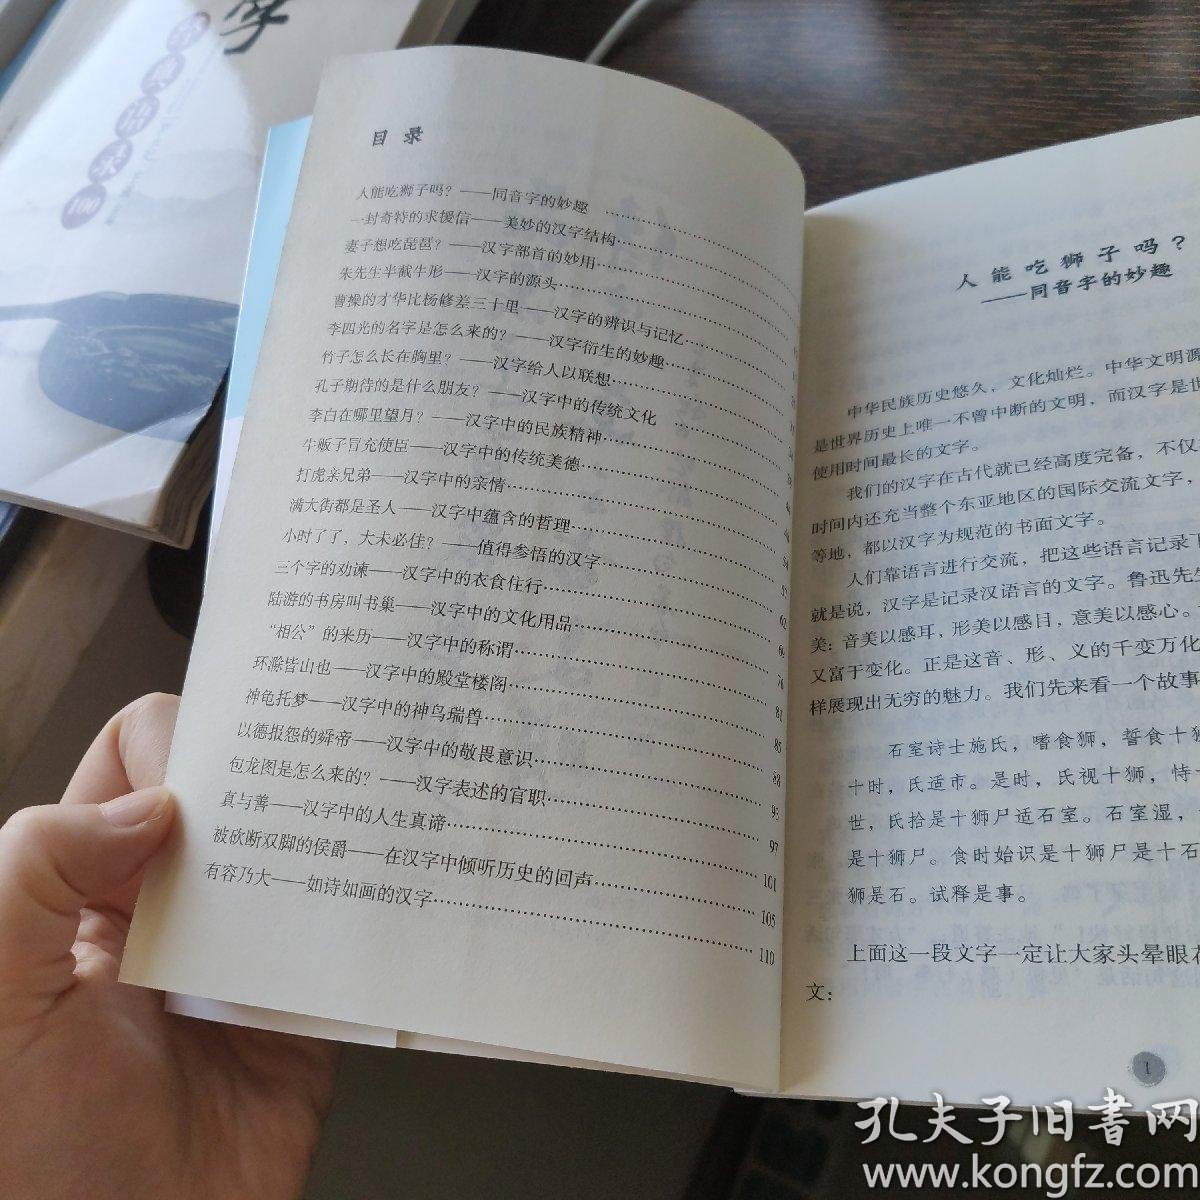 字
100
目录
人能吃狮子吗？——同音字的妙趣
一封奇特的求援信——美妙的汉字结构
妻子想吃琵琶？——汉字部首的妙用
朱先生半截牛形——汉字的源头
曹操的才华比杨修差三十里——汉字的辨识与记忆
李四光的名字是怎么来的？——汉字衍生的妙趣
竹子怎么长在胸里？——汉字给人以联想
孔子期待的是什么朋友？——汉字中的传统文化
李白在哪里望月？——汉字中的民族精神
牛贩子冒充使臣——汉字中的传统美德
打虎亲兄弟——汉字中的亲情
满大街都是圣人——汉字中蕴含的哲理
小时了了，大未必佳？——值得参悟的汉字
三个字的劝谏——汉字中的衣食住行
陆游的书房叫书巢——汉字中的文化用品
“相公”的来历——汉字中的称谓
环滁皆山也——汉字中的殿堂楼阁 76
神龟托梦——汉字中的神鸟瑞兽 81
以德报怨的舜帝——汉字中的敬畏意识 85
包龙图是怎么来的？——汉字表述的官职 93
真与善——汉字中的人生真谛 97
被砍断双脚的侯爵——在汉字中倾听历史的回声 105
有容乃大——如诗如画的汉字 110
人能吃狮子吗？
——同音字的妙趣
中华民族历史悠久，文化灿烂。中华文明源
是世界历史上唯一不曾中断的文明，而汉字是世
使用时间最长的文字。
我们的汉字在古代就已经高度完备，不仅
时间内还充当整个东亚地区的国际交流文字，
等地，都以汉字为规范的书面文字。
人们靠语言进行交流，把这些语言记录下
就是说，汉字是记录汉语言的文字。鲁迅先生
美：音美以感耳，形美以感目，意美以感心。
又富于变化。正是这音、形、义的千变万化
样展现出无穷的魅力。我们先来看一个故事
石室诗士施氏，嗜食狮，誓食十狮
十时，氏适市。是时，氏视十狮，恃十
世，氏拾是十狮尸适石室。石室湿，
是十狮尸。食时始识是十狮尸是十石
狮是石。试释是事。
上面这一段文字一定让大家头晕眼花
文：
1
孔夫子旧书网
www.kongfz.com